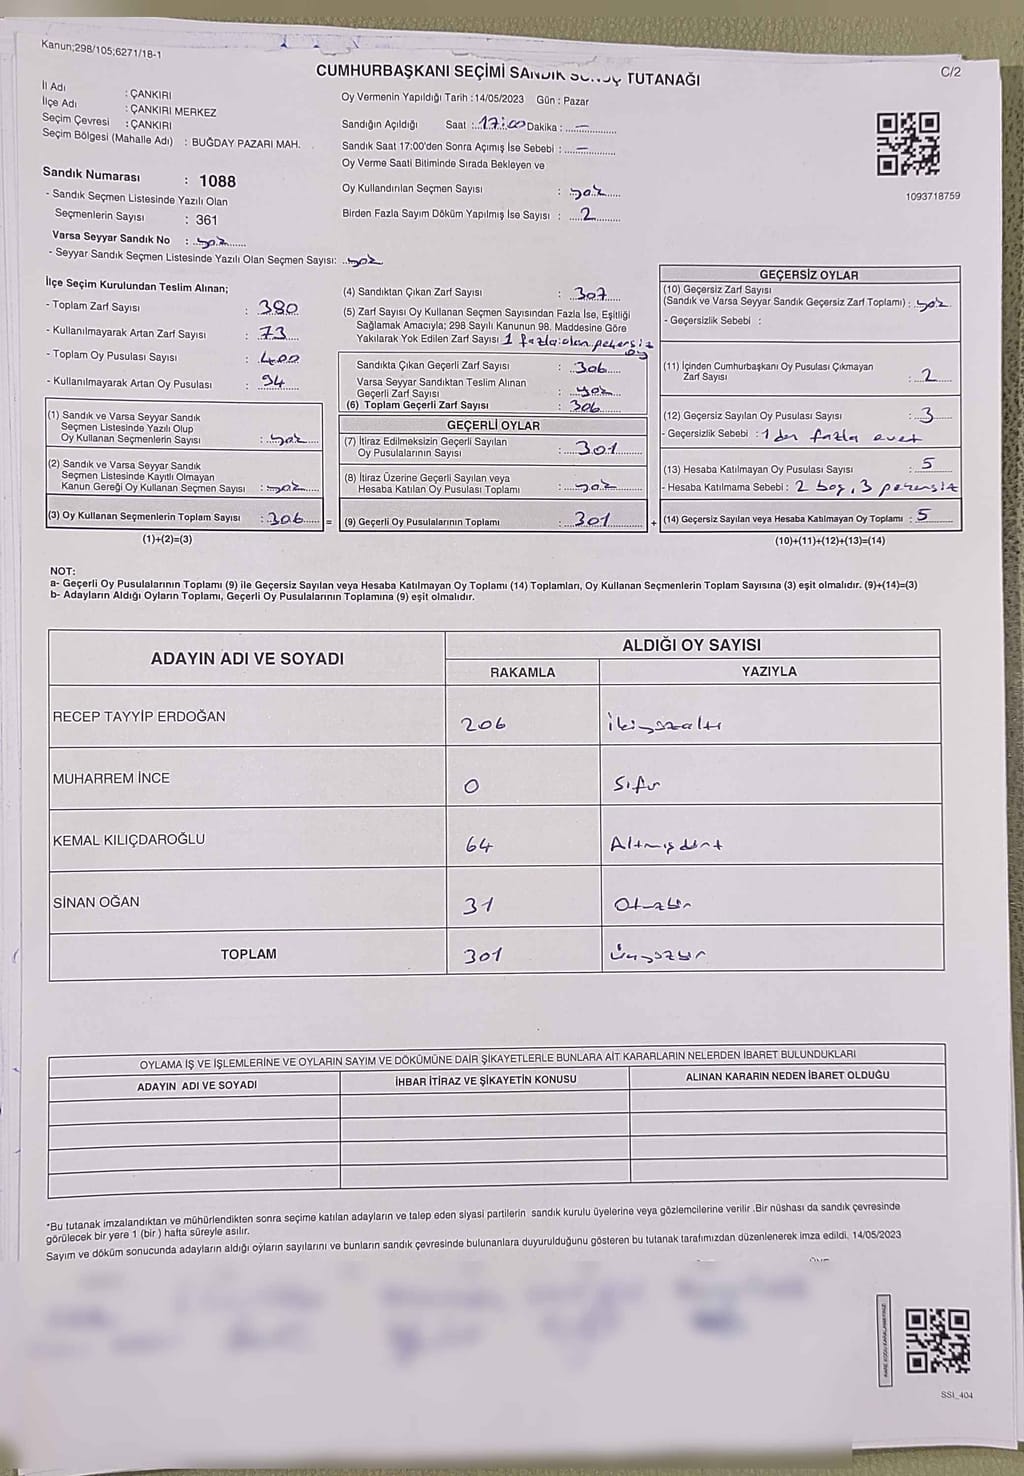 Kanun;298/105;6271/18-1
C/2
CUMHURBAŞKANI SEÇİMİ SANDIK SONUÇ TUTANAĞI
İl Adı : ÇANKIRI
İlçe Adı : ÇANKIRI MERKEZ
Seçim Çevresi : ÇANKIRI
Seçim Bölgesi (Mahalle Adı) : BUĞDAY PAZARI MAH.
Oy Vermenin Yapıldığı Tarih :14/05/2023 Gün : Pazar
Sandığın Açıldığı Saat : 17:00 Dakika : —
Sandık Saat 17:00'den Sonra Açımış İse Sebebi : —
Oy Verme Saati Bitiminde Sırada Bekleyen ve
Oy Kullandırılan Seçmen Sayısı : yok
Birden Fazla Sayım Döküm Yapılmış İse Sayısı : 2
1093718759
Sandık Numarası : 1088
- Sandık Seçmen Listesinde Yazılı Olan
Seçmenlerin Sayısı : 361
Varsa Seyyar Sandık No : yok
- Seyyar Sandık Seçmen Listesinde Yazılı Olan Seçmen Sayısı: yok
İlçe Seçim Kurulundan Teslim Alınan;
- Toplam Zarf Sayısı : 380
- Kullanılmayarak Artan Zarf Sayısı : 73
- Toplam Oy Pusulası Sayısı : 400
- Kullanılmayarak Artan Oy Pusulası : 94
(1) Sandık ve Varsa Seyyar Sandık
Seçmen Listesinde Yazılı Olup
Oy Kullanan Seçmenlerin Sayısı : yok
(2) Sandık ve Varsa Seyyar Sandık
Seçmen Listesinde Kayıtlı Olmayan
Kanun Gereği Oy Kullanan Seçmen Sayısı : yok
(3) Oy Kullanan Seçmenlerin Toplam Sayısı : 306 =
(1)+(2)=(3)
(4) Sandıktan Çıkan Zarf Sayısı : 307
(5) Zarf Sayısı Oy Kullanan Seçmen Sayısından Fazla İse, Eşitliği
Sağlamak Amacıyla; 298 Sayılı Kanunun 98. Maddesine Göre
Yakılarak Yok Edilen Zarf Sayısı 1 fazla olan geçersiz
oy
Sandıkta Çıkan Geçerli Zarf Sayısı : 306
Varsa Seyyar Sandıktan Teslim Alınan
Geçerli Zarf Sayısı : yok
(6) Toplam Geçerli Zarf Sayısı : 306
GEÇERLİ OYLAR
(7) İtiraz Edilmeksizin Geçerli Sayılan
Oy Pusulalarının Sayısı : 301
(8) İtiraz Üzerine Geçerli Sayılan veya
Hesaba Katılan Oy Pusulası Toplamı : yok
(9) Geçerli Oy Pusulalarının Toplamı : 301 +
GEÇERSİZ OYLAR
(10) Geçersiz Zarf Sayısı
(Sandık ve Varsa Seyyar Sandık Geçersiz Zarf Toplamı) : yok
- Geçersizlik Sebebi :
(11) İçinden Cumhurbaşkanı Oy Pusulası Çıkmayan
Zarf Sayısı : 2
(12) Geçersiz Sayılan Oy Pusulası Sayısı : 3
- Geçersizlik Sebebi : 1 den fazla evet
(13) Hesaba Katılmayan Oy Pusulası Sayısı : 5
- Hesaba Katılmama Sebebi : 2 boş, 3 geçersiz
(14) Geçersiz Sayılan veya Hesaba Katılmayan Oy Toplamı : 5
(10)+(11)+(12)+(13)=(14)
NOT:
a- Geçerli Oy Pusulalarının Toplamı (9) ile Geçersiz Sayılan veya Hesaba Katılmayan Oy Toplamı (14) Toplamları, Oy Kullanan Seçmenlerin Toplam Sayısına (3) eşit olmalıdır. (9)+(14)=(3)
b- Adayların Aldığı Oyların Toplamı, Geçerli Oy Pusulalarının Toplamına (9) eşit olmalıdır.
ADAYIN ADI VE SOYADI
ALDIĞI OY SAYISI
RAKAMLA YAZIYLA
RECEP TAYYİP ERDOĞAN 206 İkiyüzaltı
MUHARREM İNCE 0 Sıfır
KEMAL KILIÇDAROĞLU 64 Altmışdört
SİNAN OĞAN 31 Otuzbir
TOPLAM 301 Üçyüzbir
OYLAMA İŞ VE İŞLEMLERİNE VE OYLARIN SAYIM VE DÖKÜMÜNE DAİR ŞİKAYETLERLE BUNLARA AİT KARARLARIN NELERDEN İBARET BULUNDUKLARI
ADAYIN ADI VE SOYADI İHBAR İTİRAZ VE ŞİKAYETİN KONUSU ALINAN KARARIN NEDEN İBARET OLDUĞU
*Bu tutanak imzalandıktan ve mühürlendikten sonra seçime katılan adayların ve talep eden siyasi partilerin sandık kurulu üyelerine veya gözlemcilerine verilir .Bir nüshası da sandık çevresinde
görülecek bir yere 1 (bir ) hafta süreyle asılır.
Sayım ve döküm sonucunda adayların aldığı oyların sayılarını ve bunların sandık çevresinde bulunanlara duyurulduğunu gösteren bu tutanak tarafımızdan düzenlenerek imza edildi. 14/05/2023
SSI_404